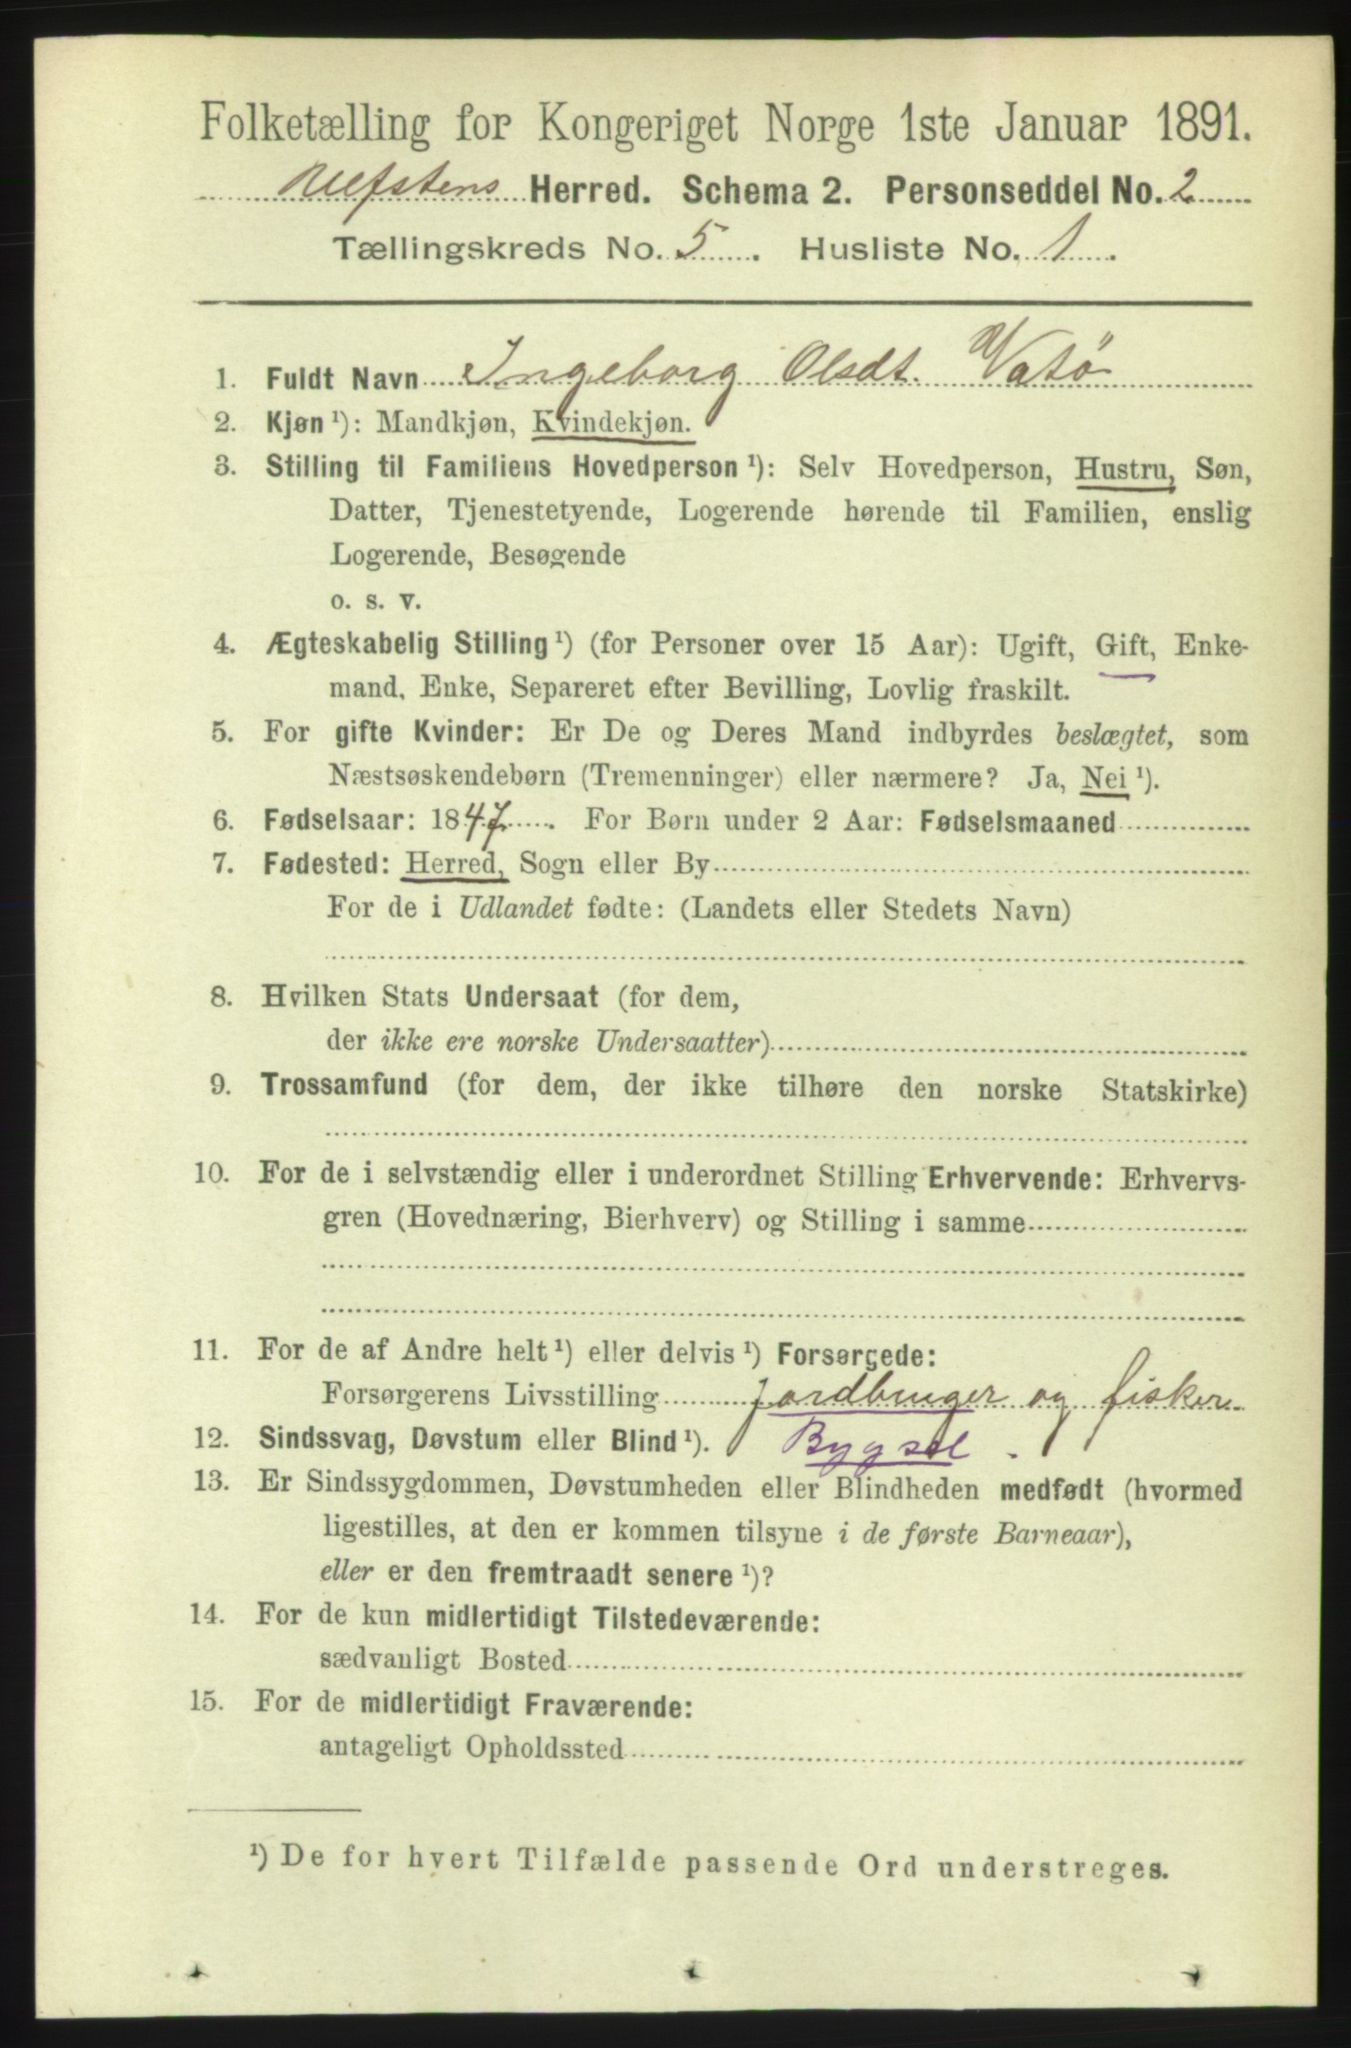 Folketælling for Kongeriget Norge 1ste Januar 1891.
Herred. Schema 2. Personseddel No. 2
Tællingskreds No. 5. Husliste No. 1.
1. Fuldt Navn Ingeborg Olsdt. Vatö
2. Kjøn ¹): Mandkjøn, Kvindekjøn.
3. Stilling til Familiens Hovedperson ¹): Selv Hovedperson, Hustru, Søn,
Datter, Tjenestetyende, Logerende hørende til Familien, enslig
Logerende, Besøgende
o. s. v.
4. Ægteskabelig Stilling ¹) (for Personer over 15 Aar): Ugift, Gift, Enke-
mand, Enke, Separeret efter Bevilling, Lovlig fraskilt.
5. For gifte Kvinder: Er De og Deres Mand indbyrdes beslægtet, som
Næstsøskendebørn (Tremenninger) eller nærmere? Ja, Nei ¹).
6. Fødselsaar: 1847. For Børn under 2 Aar: Fødselsmaaned
7. Fødested: Herred, Sogn eller By
For de i Udlandet fødte: (Landets eller Stedets Navn)
8. Hvilken Stats Undersaat (for dem,
der ikke ere norske Undersaatter)
9. Trossamfund (for dem, der ikke tilhøre den norske Statskirke)
10. For de i selvstændig eller i underordnet Stilling Erhvervende: Erhvervs-
gren (Hovednæring, Bierhverv) og Stilling i samme
11. For de af Andre helt ¹) eller delvis ¹) Forsørgede:
Forsørgerens Livsstilling Jordbruger og fisker
12. Sindssvag, Døvstum eller Blind ¹). Bygsel
13. Er Sindssygdommen, Døvstumheden eller Blindheden medfødt (hvormed
ligestilles, at den er kommen tilsyne i de første Barneaar),
eller er den fremtraadt senere ¹)?
14. For de kun midlertidigt Tilstedeværende:
sædvanligt Bosted
15. For de midlertidigt Fraværende:
antageligt Opholdssted
¹) De for hvert Tilfælde passende Ord understreges.